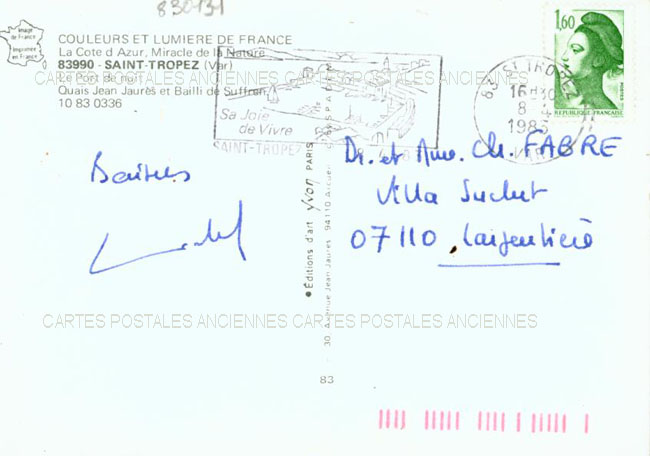 830131
Image de France
Imprimée en France
COULEURS ET LUMIERE DE FRANCE
La Cote d'Azur, Miracle de la Nature
83990 - SAINT-TROPEZ (Var)
Le Port de nuit
Quais Jean Jaurès et Bailli de Suffren
10 83 0336
Sa Joie
de Vivre
SAINT-TROPEZ
83 ST TROPEZ
16 H 30
8
1983
VAR
1,60
POSTES
REPUBLIQUE FRANÇAISE
Baisers
Dr. et Mme. Ch. FABRE
Villa Suchet
07110 Largentière
●Éditions d'art Yvon PARIS
30, Avenue Jean Jaurès, 94110 Arcueil
83
CARTES POSTALES ANCIENNES CARTES POSTALES ANCIENNES
CARTES POSTALES ANCIENNES CARTES POSTALES ANCIENNES